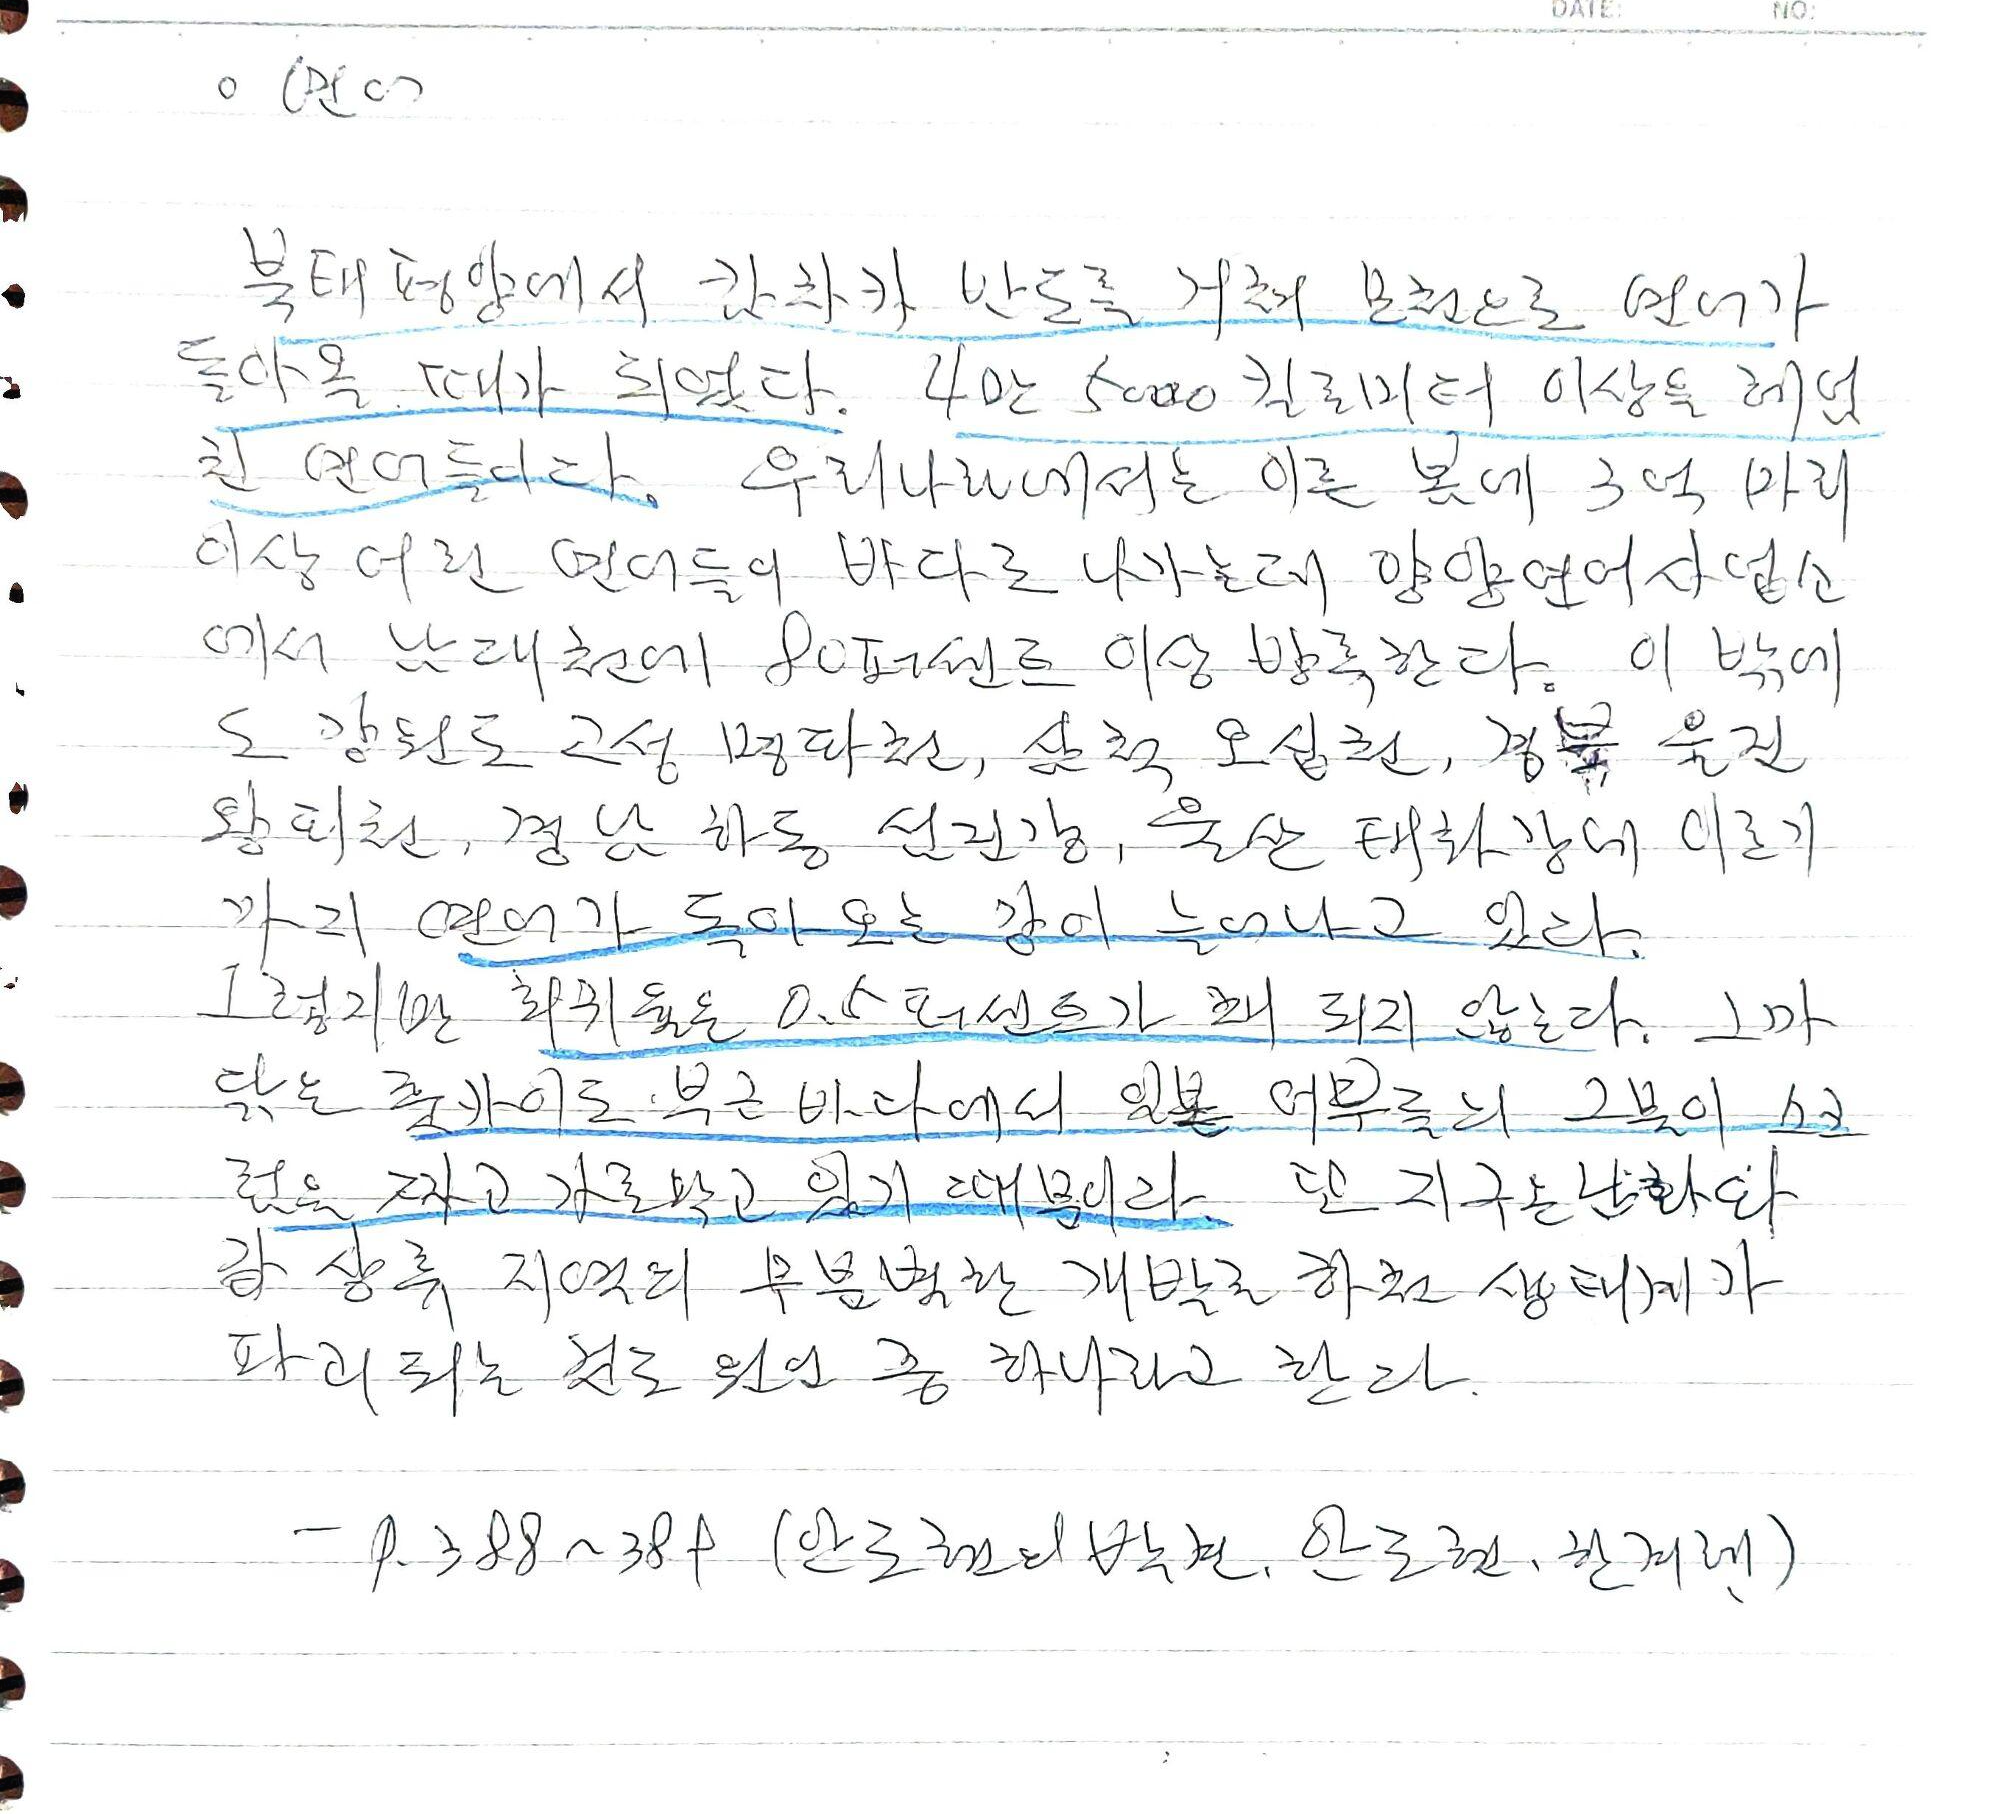 DATE: NO:
o 연어
북태평양에서 캄차카 반도를 거쳐 모천으로 연어가
돌아올 때가 되었다. 4만 5000킬로미터 이상을 헤엄
친 연어들이다. 우리나라에서는 이른 봄에 3억 마리
이상 어린 연어들이 바다로 나가는데 양양연어사업소
에서 남대천에 80퍼센트 이상 방류한다. 이 밖에
도 강원도 고성 명파천, 삼척 오십천, 경북 울진
왕피천, 경남 하동 섬진강, 울산 태화강에 이르기
까지 연어가 돌아오는 강이 늘어나고 있다.
그렇지만 회귀율은 0.5퍼센트가 채 되지 않는다. 그 까
닭은 홋카이도 부근 바다에서 일본 어부들의 그물이 스크
럼을 짜고 가로막고 있기 때문이다. 또 지구온난화와
강 상류 지역의 무분별한 개발로 하천 생태계가
파괴되는 것도 원인 중 하나라고 한다.
- p.388~389 (안도현의 발견. 안도현. 한겨레)